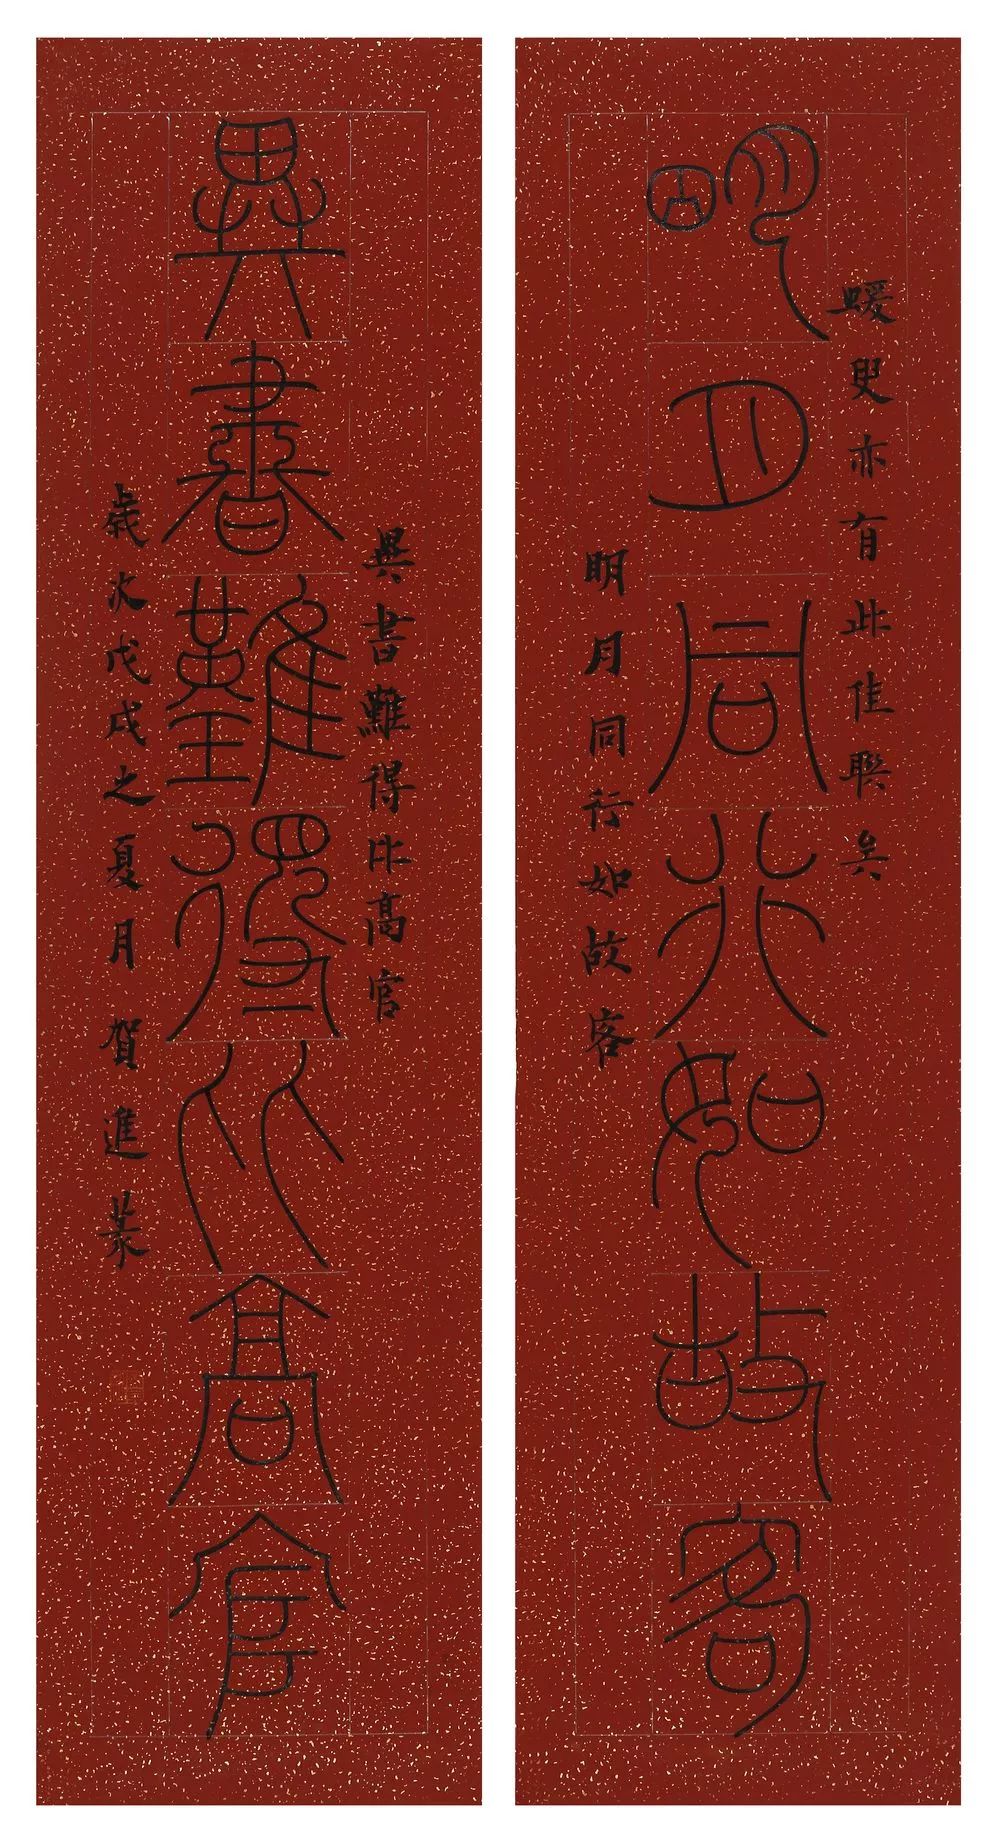 明月同行如故客
蝯叟亦有此佳联矣
明月同行如故客
異書難得比高官
異書難得比高官
歲次戊戌之夏月賀進萊